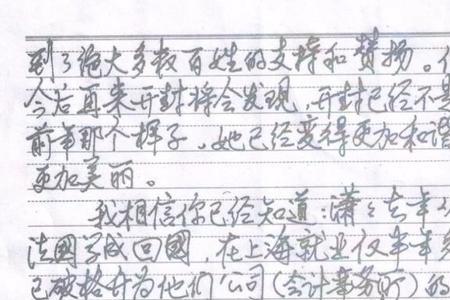 到了绝大多数百姓的支持和赞扬。
今后再来开封将会发现,开封已经不是
前年那个样子,她已经变得更加和谐
更加美丽。
我相信你已经知道:潇々去年从
法国学成回國,在上海就业仅半年多
已破格升为他们公司(会计事务所)的